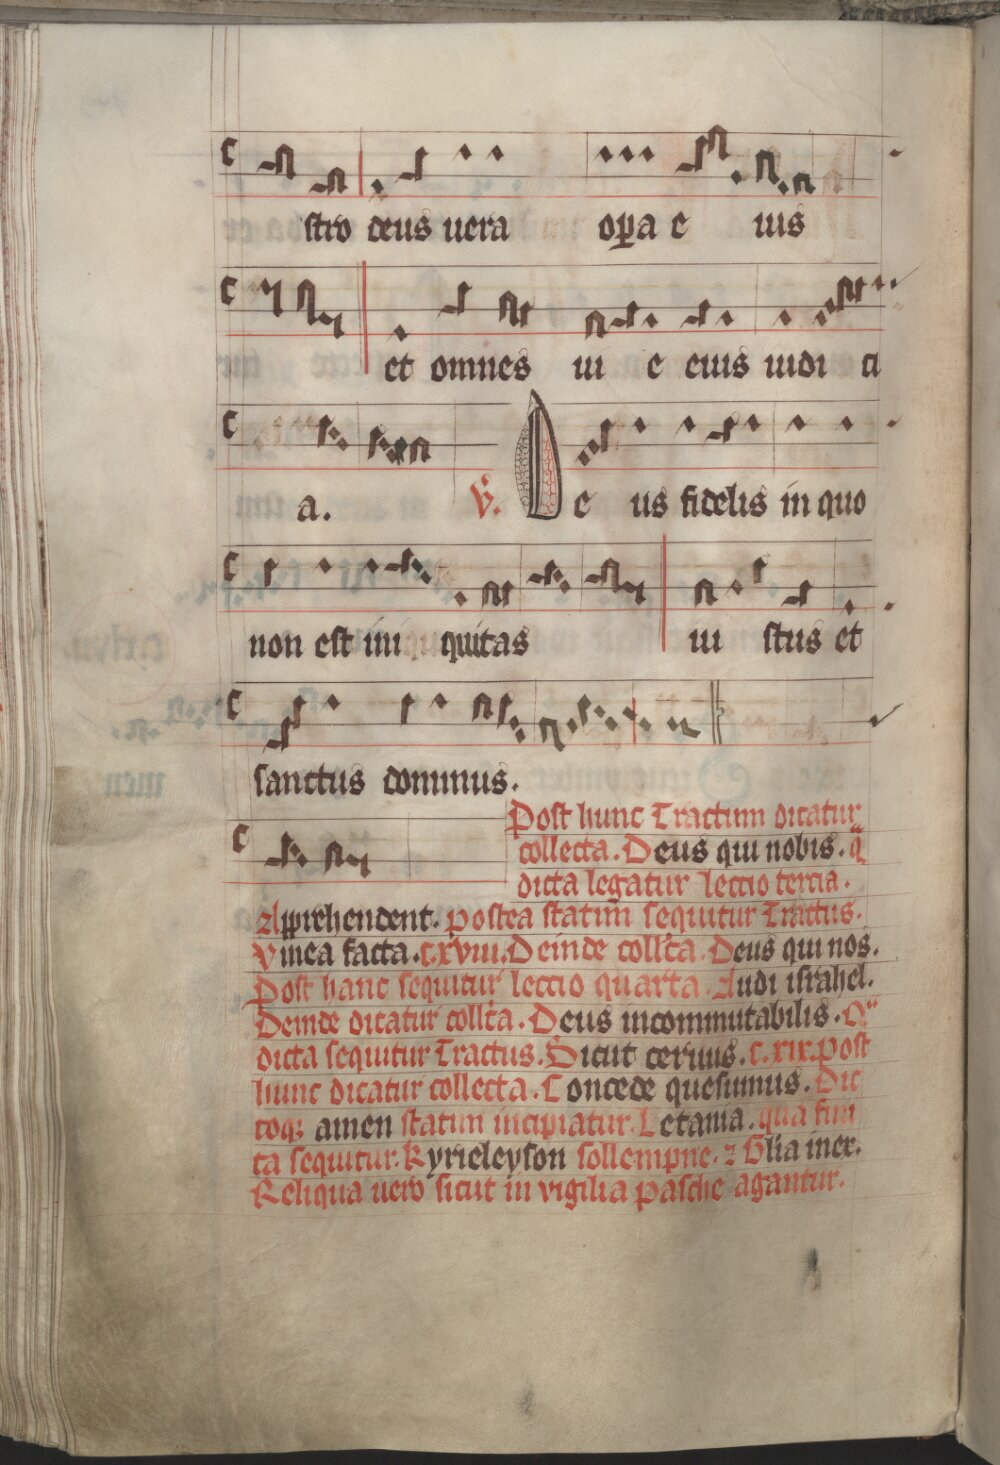 stro deus uera opa e ius
et omnes ui e eius iudi ci
a. V. De us fidelis in quo
non est ini quitas iu stus et
sanctus dominus.
Post hunc Tractum dicatur
collecta. Deus qui nobis. q̄
dicta legatur lectio tercia.
Apprehendent. postea statim sequitur Tractus.
Vinea facta. c.xviii. Deinde collcā. Deus qui nos.
Post hanc sequitur lectio quarta. Audi israhel.
Deinde dicatur collcā. Deus incommutabilis. Qᵃ
dicta sequitur Tractus. Sicut ceruus. c.xix. Post
hunc dicatur collecta. Concede quesumus. Dic
toqꝫ amen statim incipiatur. Letania. qua fini
ta sequitur. Kyrieleyson sollempne. ⁊ Glia inex.
Reliqua uero sicut in vigilia pasche agantur.